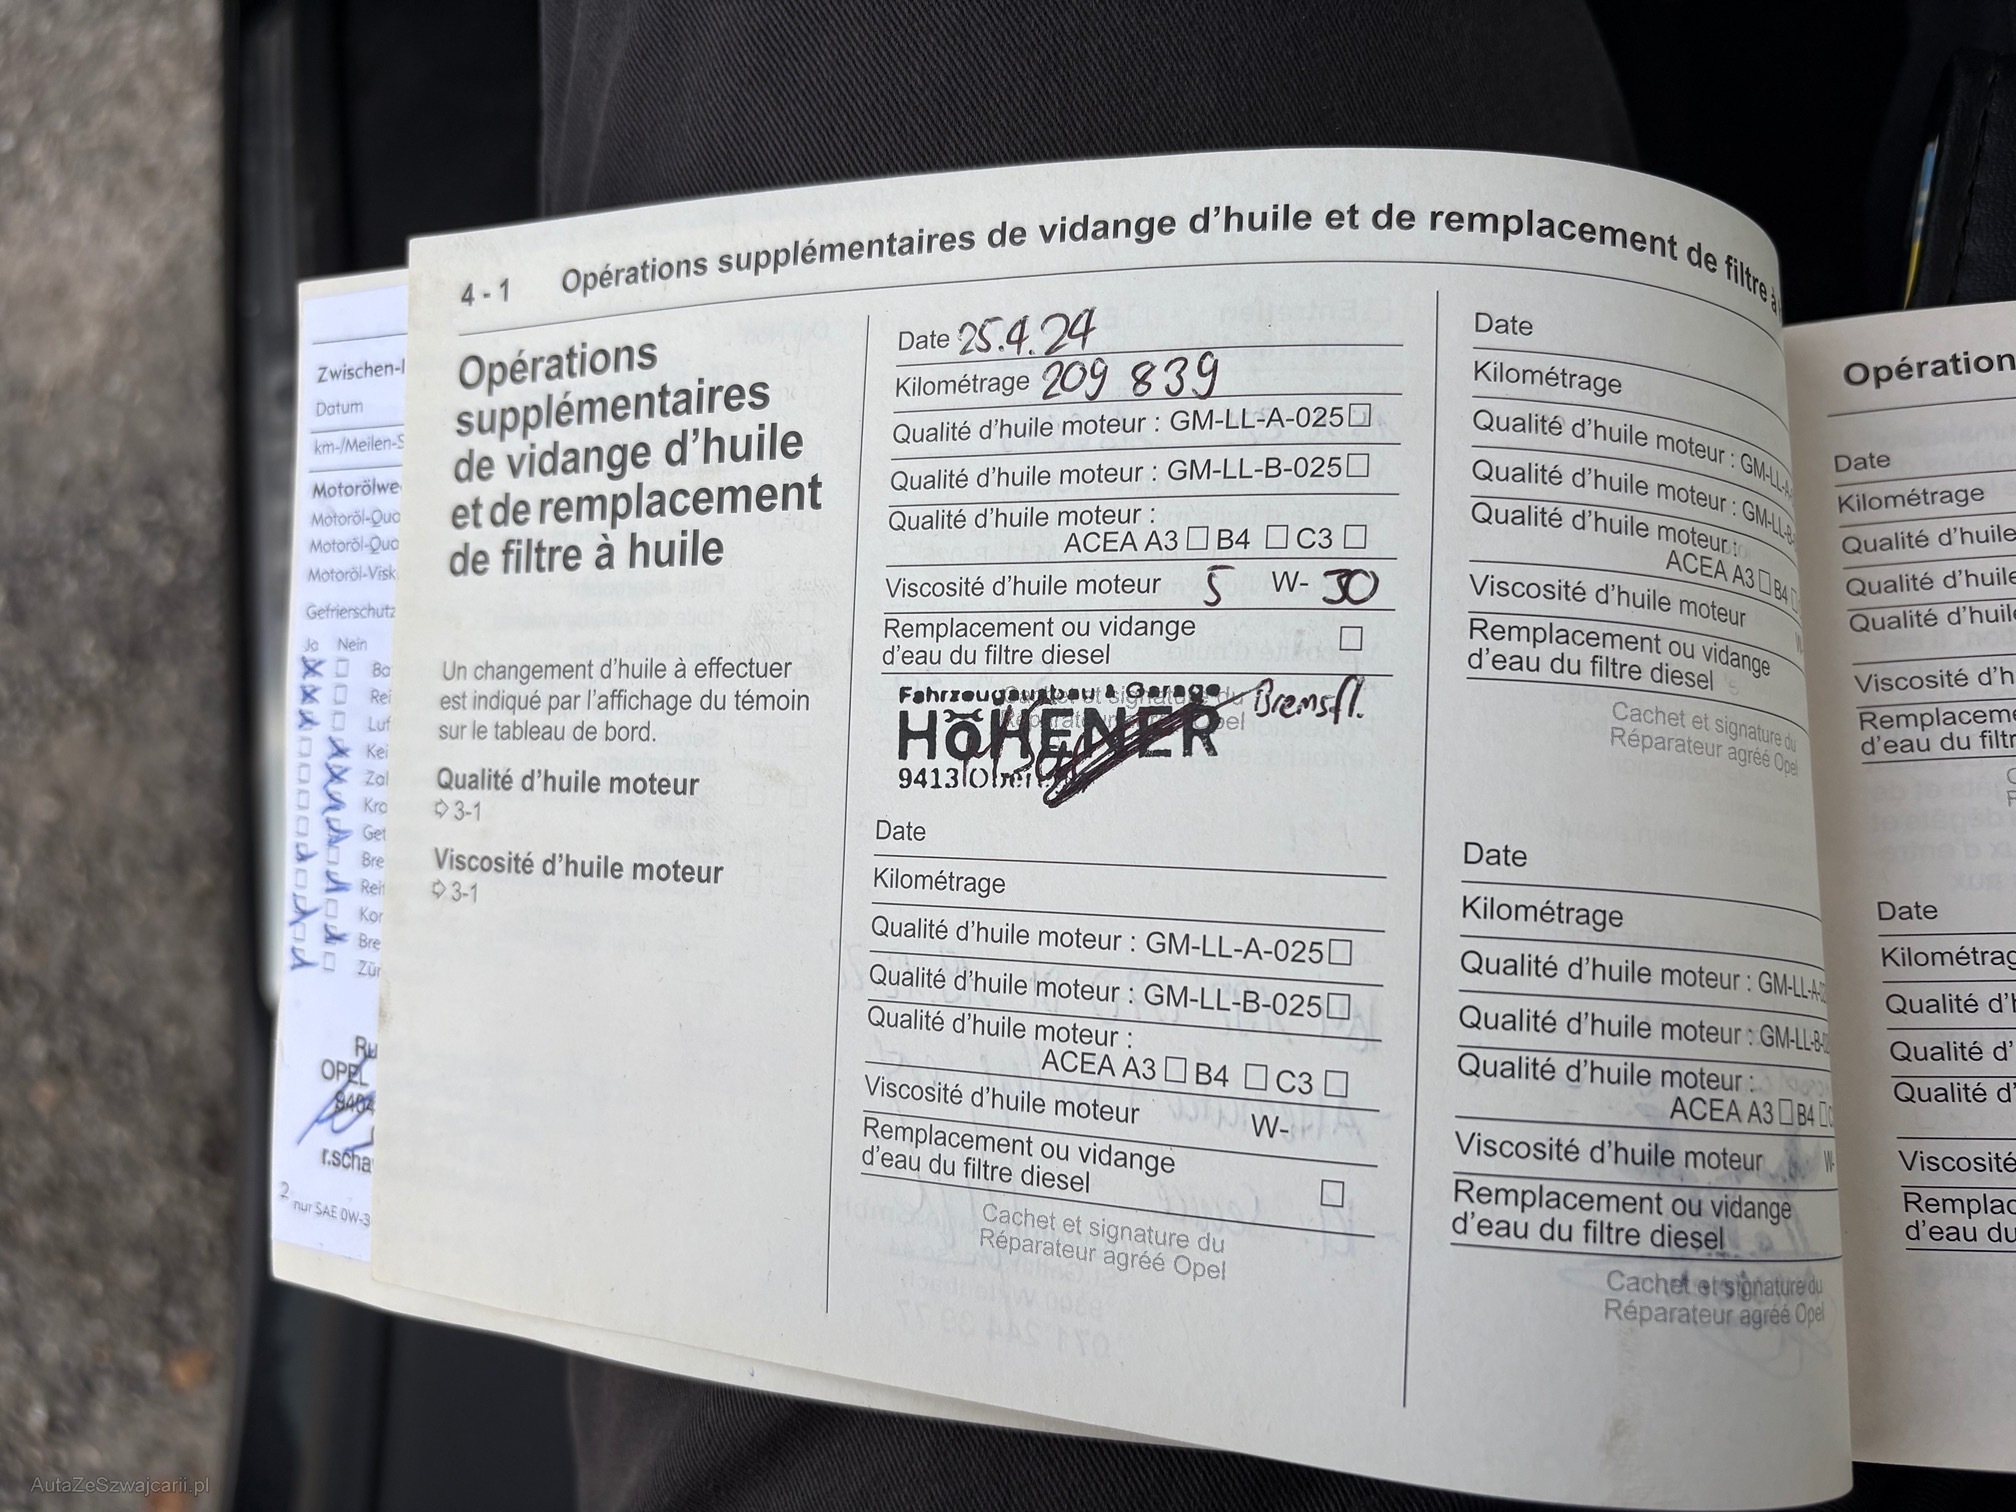 4 - 1 Opérations supplémentaires de vidange d'huile et de remplacement de filtre à
Zwischen-I
Datum
km-/Meilen-S
Motorölwe
Motoröl-Qua
Motoröl-Qua
Motoröl-Visk
Gefrierschutz
Ja Nein
Ba
Rei
Luf
Kei
Zal
Kra
Get
Bre
Reif
Kor
Bre
Zür
Ru
OPEL
9404
r.scha
2 nur SAE 0W-3
Opérations
supplémentaires
de vidange d'huile
et de remplacement
de filtre à huile
Un changement d'huile à effectuer
est indiqué par l'affichage du témoin
sur le tableau de bord.
Qualité d'huile moteur
⇨ 3-1
Viscosité d'huile moteur
⇨ 3-1
Date 25.4.24
Kilométrage 209 839
Qualité d'huile moteur : GM-LL-A-025 ☐
Qualité d'huile moteur : GM-LL-B-025 ☐
Qualité d'huile moteur :
ACEA A3 ☐ B4 ☐ C3 ☐
Viscosité d'huile moteur 5 W- 30
Remplacement ou vidange
d'eau du filtre diesel ☐
Fahrzeugausbau & Garage
HÖHENER Bremsfl.
9413
Date
Kilométrage
Qualité d'huile moteur : GM-LL-A-025 ☐
Qualité d'huile moteur : GM-LL-B-025 ☐
Qualité d'huile moteur :
ACEA A3 ☐ B4 ☐ C3 ☐
Viscosité d'huile moteur W-
Remplacement ou vidange
d'eau du filtre diesel ☐
Cachet et signature du
Réparateur agréé Opel
Date
Kilométrage
Qualité d'huile moteur : GM-LL-A-
Qualité d'huile moteur : GM-LL-B-
Qualité d'huile moteur :
ACEA A3 ☐ B4 ☐
Viscosité d'huile moteur W-
Remplacement ou vidange
d'eau du filtre diesel
Cachet et signature du
Réparateur agréé Opel
Date
Kilométrage
Qualité d'huile moteur : GM-LL-A-02
Qualité d'huile moteur : GM-LL-B-02
Qualité d'huile moteur :
ACEA A3 ☐ B4 ☐
Viscosité d'huile moteur W-
Remplacement ou vidange
d'eau du filtre diesel
Cachet et signature du
Réparateur agréé Opel
Opération
Date
Kilométrage
Qualité d'huile
Qualité d'huile
Qualité d'huil
Viscosité d'h
Remplaceme
d'eau du filtr
Date
Kilométrag
Qualité d'h
Qualité d'
Qualité d'
Viscosité
Remplac
d'eau du
AutaZeSzwajcarii.pl